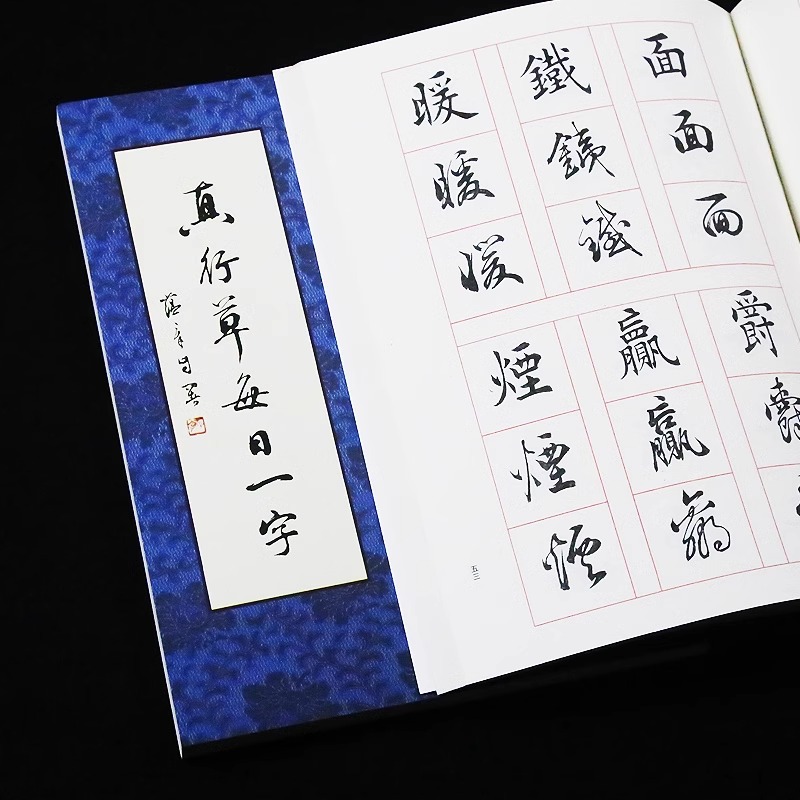 真行草每日一字
面面面
鐵銕鐵
暖暖暖
爵爵
贏贏贏
煙煙煙
五三